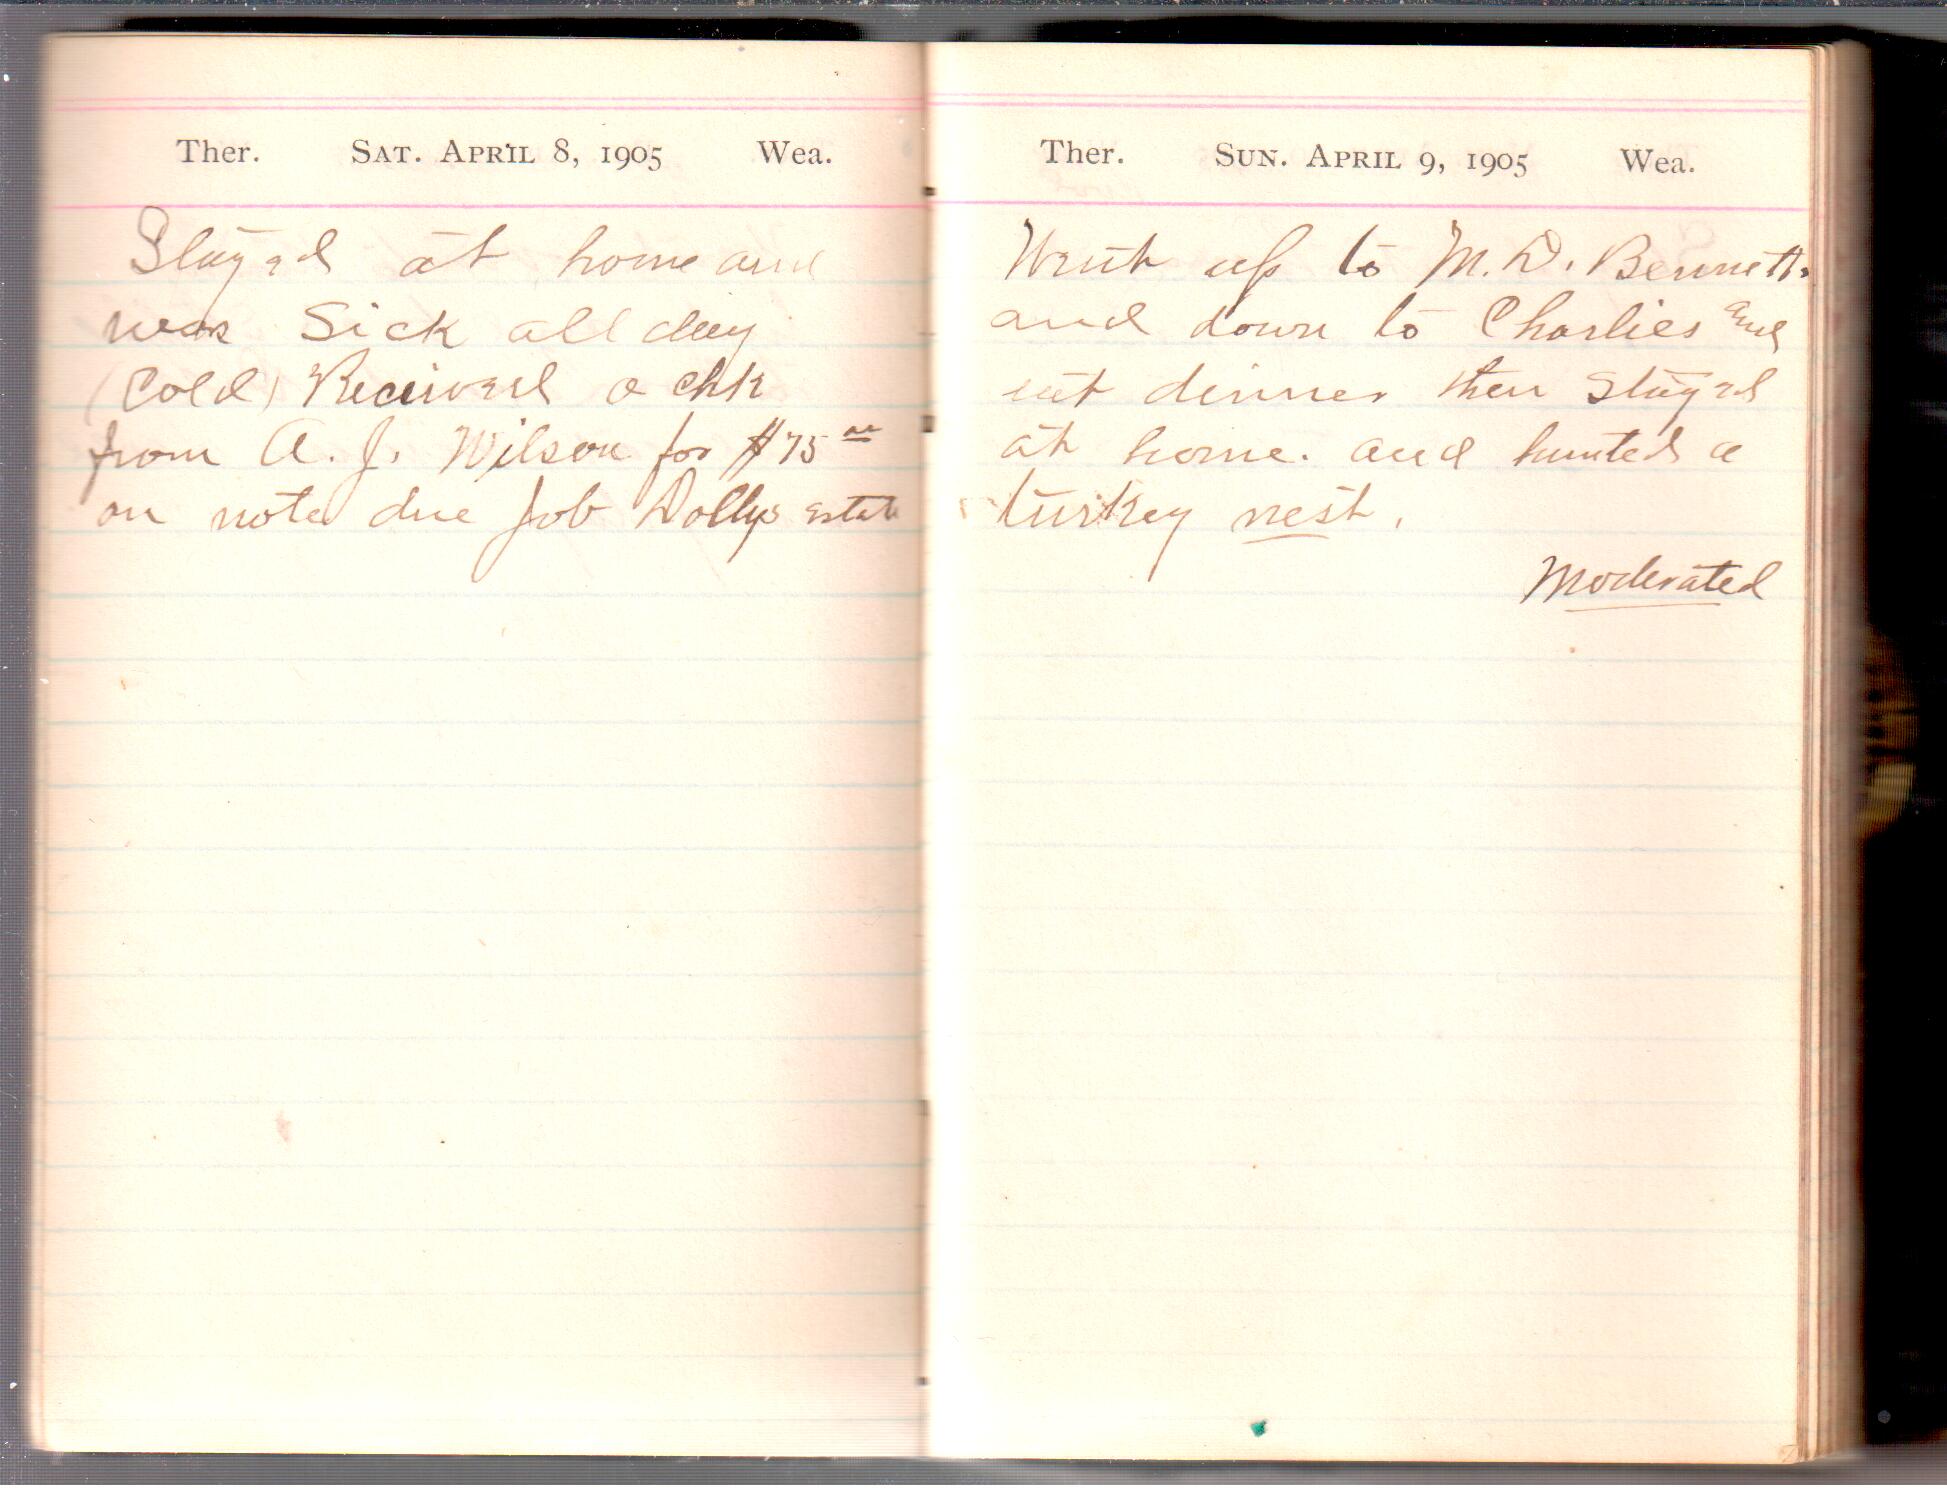 Ther. SAT. APRIL 8, 1905 Wea.
Stayed at home and
was Sick all day
(Cold) Received a chk
from A. J. Wilson for $75 00
on note due Job Dollys estate
Ther. SUN. APRIL 9, 1905 Wea.
Went up to M. D. Bennetts
and down to Charlies and
eat dinner then Stayed
at home. and hunted a
turkey nest.
Moderated